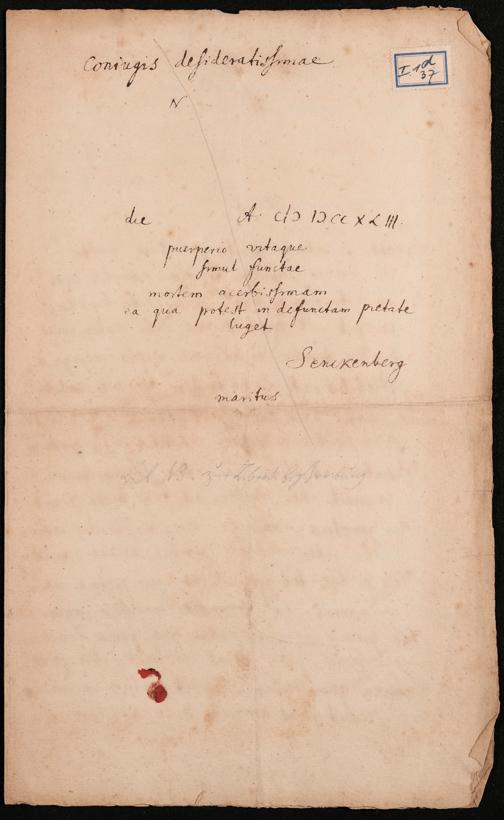 Coniugis desideratissimae
I. 1d
37
N
die A. CIↃ IↃCC XLIII.
puerperio vitaque
simul functae
mortem acerbissimam
ea qua potest in defunctam pietate
luget
Senckenberg
maritus